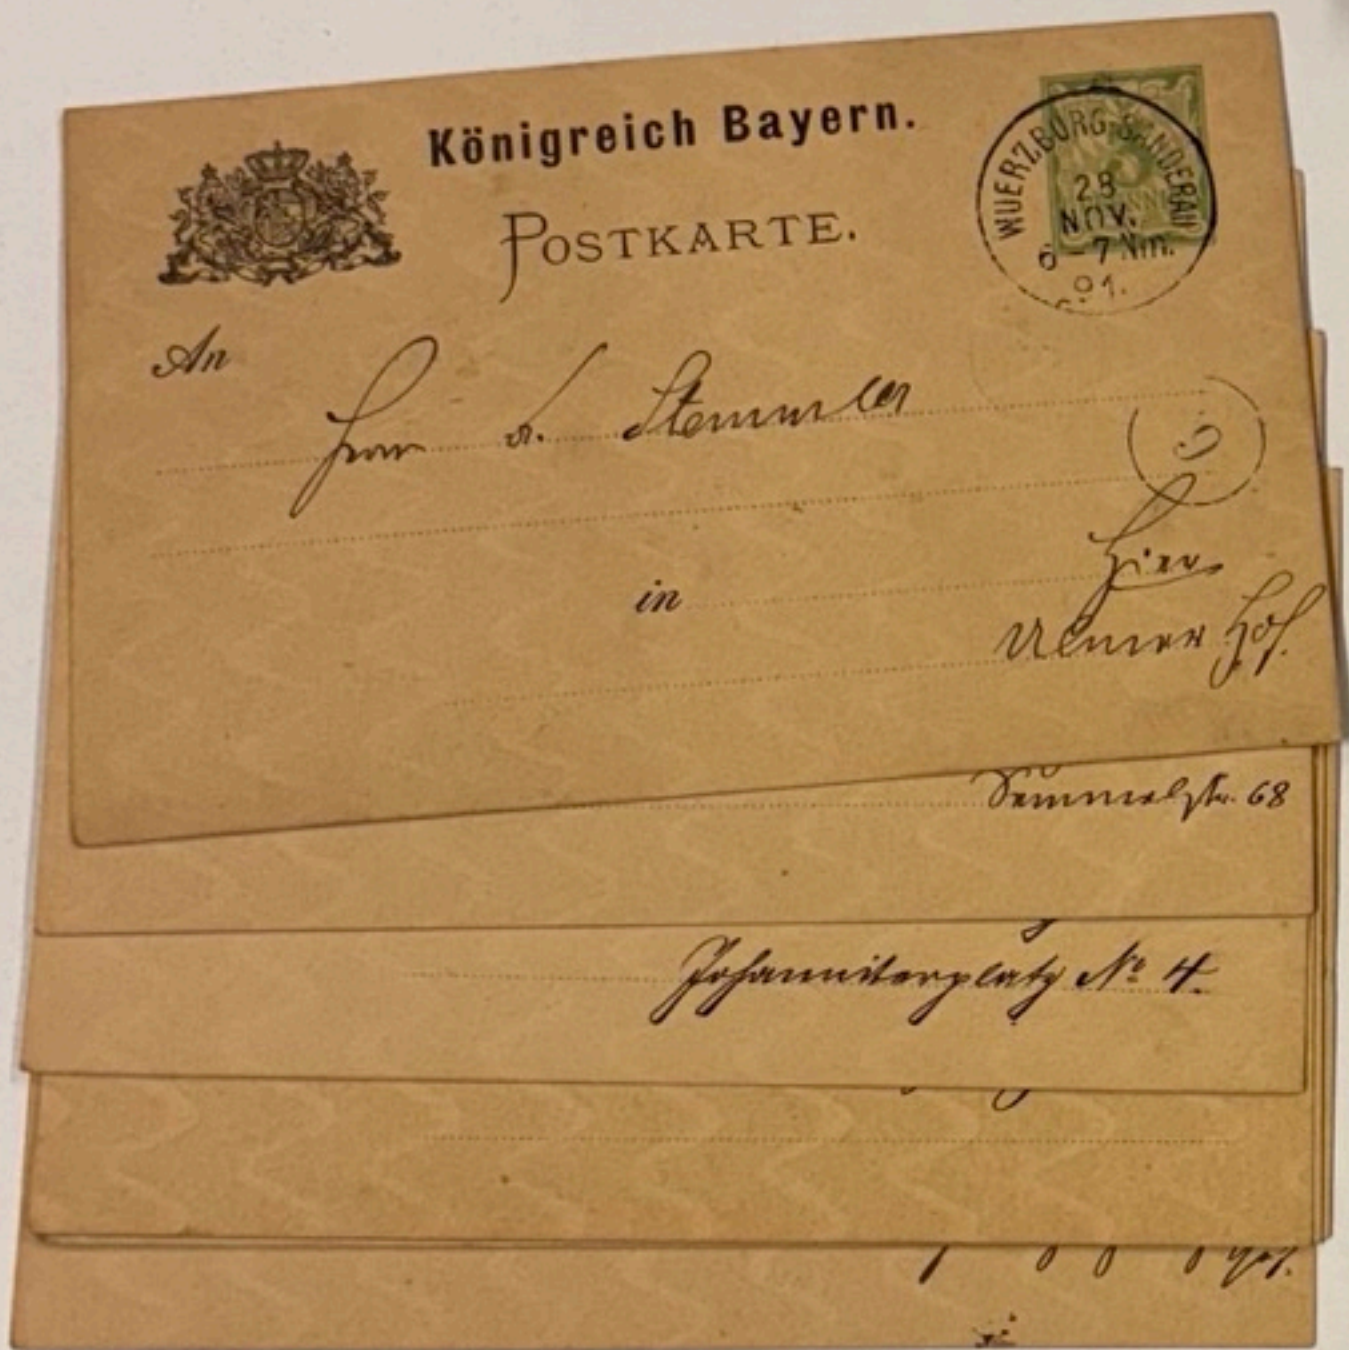 Königreich Bayern.
POSTKARTE.
WUERZBURG-SANDERAU
28
NOV.
6-7 Nm.
91.
An
Herrn A. Stemmler
in
Hier
Ulmer Hof.
Semmelstr. 68
Johanniterplatz No 4.